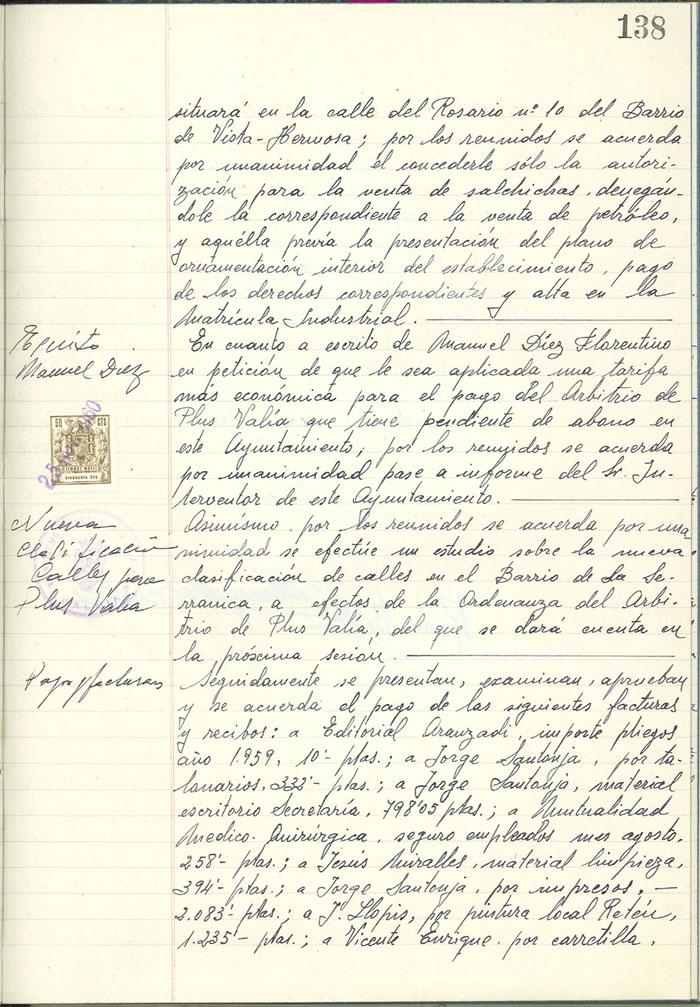 138
situará en la calle del Rosario nº 10 del Barrio
de Vista-Hermosa; por los reunidos se acuerda
por unanimidad el concederle sólo la autori-
zación para la venta de salchichas, denegán-
dole la correspondiente a la venta de petróleo,
y aquélla previa la presentación del plano de
ornamentación interior del establecimiento, pago
de los derechos correspondientes y alta en la
Matrícula Industrial.
Escrito
Manuel Diez
En cuanto a escrito de Manuel Díez Florentino
en petición de que le sea aplicada una tarifa
más económica para el pago del Arbitrio de
Plus Valía que tiene pendiente de abono en
este Ayuntamiento, por los reunidos se acuerda
por unanimidad pase a informe del Sr. In-
terventor de este Ayuntamiento.
50 CTS
Nueva
Clasificación
Calles para
Plus Valia
Asimismo, por los reunidos se acuerda por una
nimidad se efectúe un estudio sobre la nueva
clasificación de calles en el Barrio de La Se-
rranica, a efectos de la Ordenanza del Arbi-
trio de Plus Valía, del que se dará cuenta en
la próxima sesión.
Pago facturas
Seguidamente se presentan, examinan, aprueban
y se acuerda el pago de las siguientes facturas
y recibos: a Editorial Aranzadi, importe pliegos
año 1.959, 10'- ptas.; a Jorge Santonja, por ta-
lonarios, 333'- ptas.; a Jorge Santonja, material
escritorio Secretaría, 798'05 ptas.; a Mutualidad
Medico-Quirúrgica, seguro empleados mes agosto,
258'- ptas.; a Jesús Miralles, material limpieza,
394'- ptas.; a Jorge Santonja, por impresos, -
2.083'- ptas.; a J. Llopis, por pintura local Retén,
1.235'- ptas.; a Vicente Enrique, por carretilla,